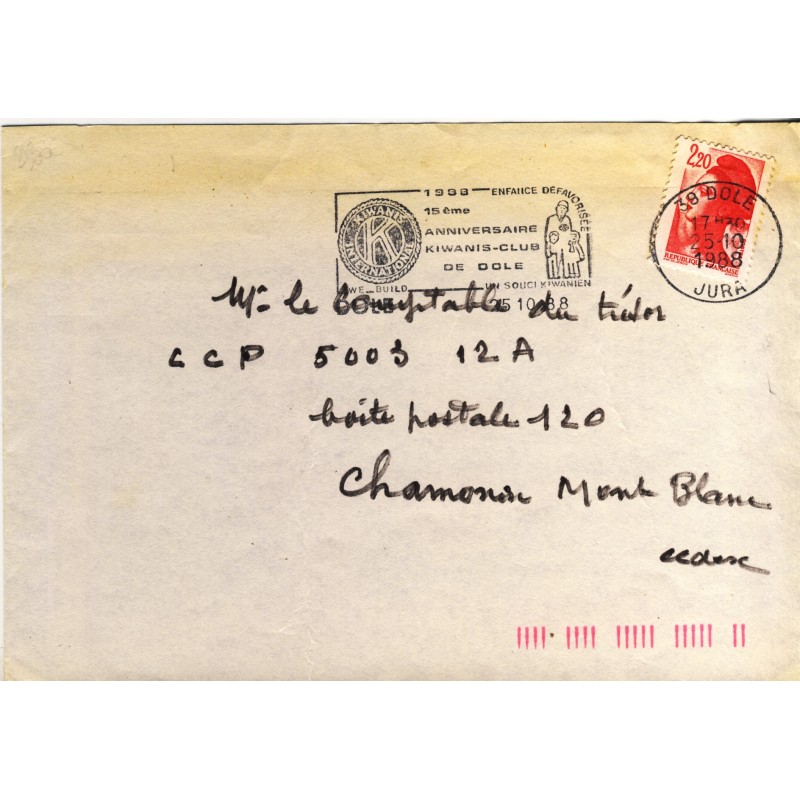 2,20
RÉPUBLIQUE FRANÇAISE
39 DOLE
17 H 30
25-10
1988
JURA
1988 ENFANCE DÉFAVORISÉE
15ème
ANNIVERSAIRE
KIWANIS-CLUB
DE DOLE
WE BUILD UN SOUCI KIWANIEN
KIWANIS INTERNATIONAL
K
DOLE 25 10 88
Mr le Comptable du trésor
CCP 5003 12A
boîte postale 120
Chamonix Mont Blanc
cedex